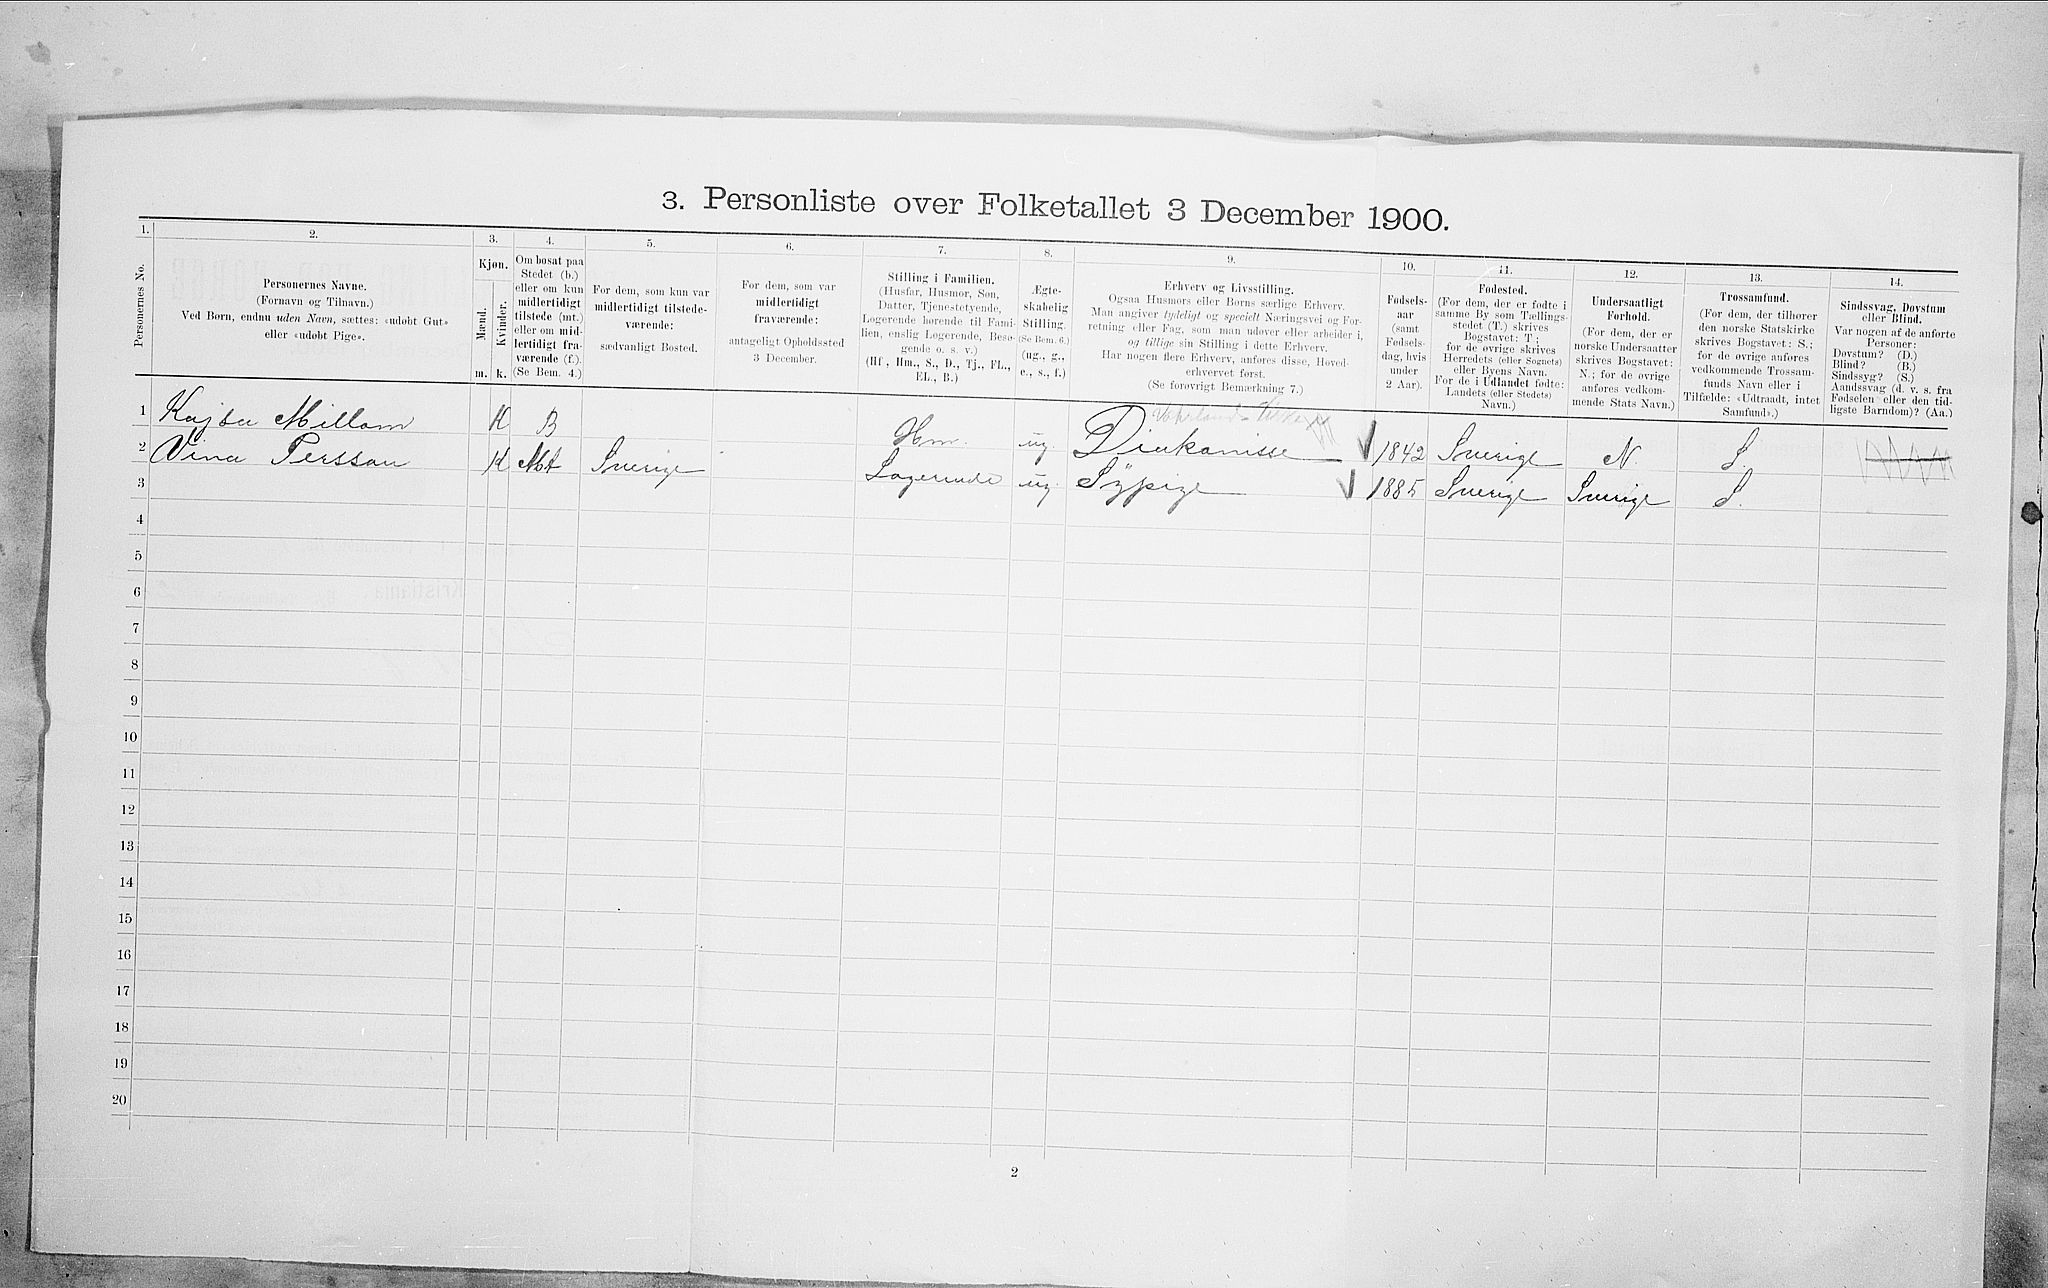 3. Personliste over Folketallet 3 December 1900.
1. 2. 3. 4. 5. 6. 7. 8. 9. 10. 11. 12. 13. 14.
Personernes No.
Personernes Navne.
(Fornavn og Tilnavn.)
Ved Børn, endnu uden Navn, sættes: «udøbt Gut»
eller «udøbt Pige».
Kjøn.
Mænd.
Kvinder.
m. k.
Om bosat paa
Stedet (b.)
eller om kun
midlertidigt
tilstede (mt.)
eller om mid-
lertidigt fra-
værende (f.).
(Se Bem. 4.)
For dem, som kun var
midlertidigt tilstede-
værende:
sædvanligt Bosted.
For dem, som var
midlertidigt
fraværende:
antageligt Opholdssted
3 December.
Stilling i Familien.
(Husfar, Husmor, Søn,
Datter, Tjenestetyende,
Logerende hørende til Fami-
lien, enslig Logerende, Besø-
gende o. s. v.)
(Hf., Hm., S., D., Tj., FL.,
EL., B.)
Ægte-
skabelig
Stilling.
(Se Bem. 6.)
(ug., g.,
e., s., f.)
Erhverv og Livsstilling.
Ogsaa Husmors eller Børns særlige Erhverv.
Man angiver tydeligt og specielt Næringsvei og For-
retning eller Fag, som man udøver eller arbeider i,
og tillige sin Stilling i dette Erhverv.
Har nogen flere Erhverv, anføres disse, Hoved-
erhvervet først.
(Se forøvrigt Bemærkning 7.)
Fødsels-
aar
(samt
Fødsels-
dag, hvis
under
2 Aar).
Fødested.
(For dem, der er fødte i
samme By som Tællings-
stedet (T.) skrives
Bogstavet: T;
for de øvrige skrives
Herredets (eller Sognets)
eller Byens Navn.
For de i Udlandet fødte:
Landets (eller Stedets)
Navn.)
Undersaatligt
Forhold.
(For dem, der er
norske Undersaatter
skrives Bogstavet:
N.; for de øvrige
anføres vedkom-
mende Stats Navn.)
Trossamfund.
(For dem, der tilhører
den norske Statskirke
skrives Bogstavet: S.;
for de øvrige anføres
vedkommende Trossam-
funds Navn eller i
Tilfælde: «Udtraadt, intet
Samfund».)
Sindssvag, Døvstum
eller Blind.
Var nogen af de anførte
Personer:
Døvstum? (D.)
Blind? (B.)
Sindssyg? (S.)
Aandssvag (d. v. s. fra
Fødselen eller den tid-
ligste Barndom)? (Aa.)
1 Kajsa Millom K B Hm. ug. Diakonisse 1842 Sverige N. S.
2 Vina Persson K Mt Sverige Logerende ug. Sypige 1885 Sverige Sverige S.
3
4
5
6
7
8
9
10
11
12
13
14
15
16
17
18
19
20
2